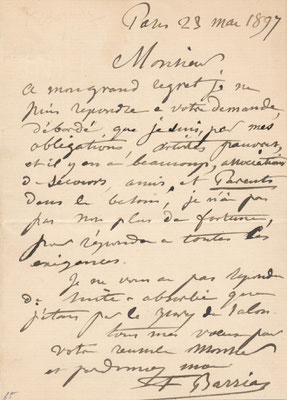 Paris 23 mai 1897
Monsieur
a mon grand regret je ne
puis repondre a votre demande,
débordé, que je suis, par mes
obligations artistes, pauvres,
et il y en a beaucoup, associations
de secours, amis, et Parents
dans le besoin, je n'ai pas
pas non plus de fortune,
pour répondre a toutes les
exigences.
Je ne vous ai pas repondu
de suite absorbé que
j'étais par le Jury du Salon.
tous mes voeux pour
votre reussite Monsieur
et pardonnez moi
F Barrias